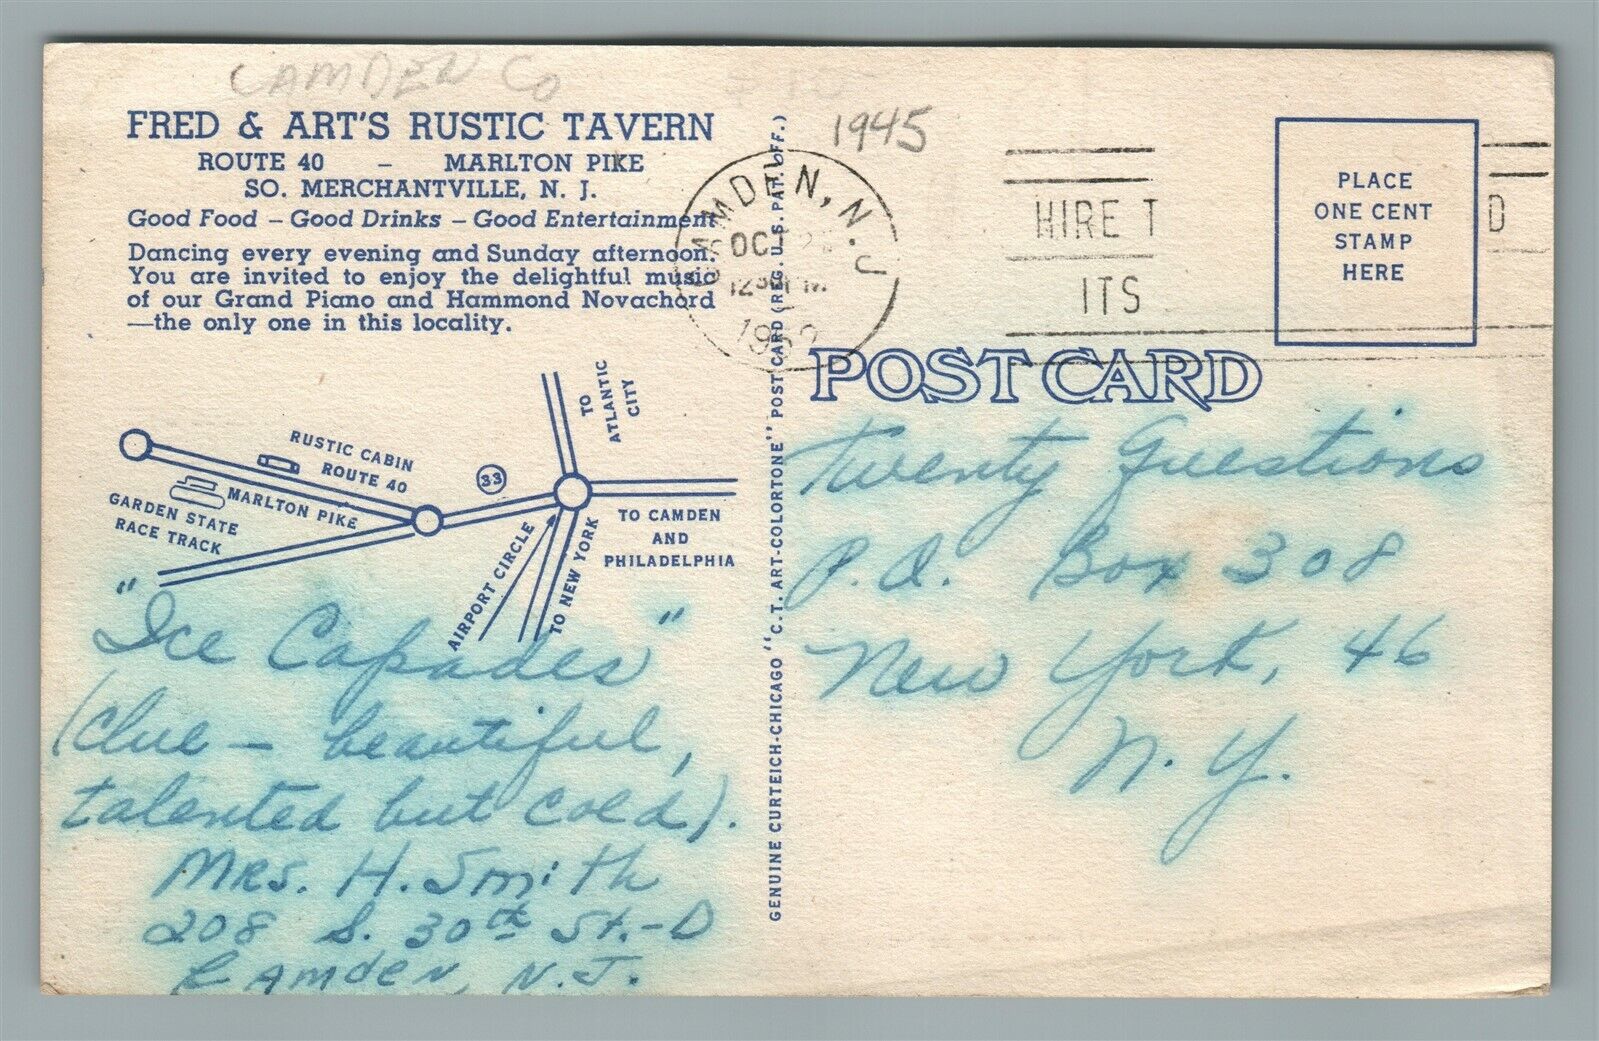 CAMDEN CO
FRED & ART'S RUSTIC TAVERN
ROUTE 40 – MARLTON PIKE
SO. MERCHANTVILLE, N. J.
Good Food – Good Drinks – Good Entertainment
Dancing every evening and Sunday afternoon.
You are invited to enjoy the delightful music
of our Grand Piano and Hammond Novachord
—the only one in this locality.
RUSTIC CABIN
ROUTE 40
MARLTON PIKE
GARDEN STATE
RACE TRACK
33
TO
ATLANTIC
CITY
TO CAMDEN
AND
PHILADELPHIA
AIRPORT CIRCLE
TO NEW YORK
"Ice Capades"
(clue – beautiful,
talented but cold).
Mrs. H. Smith
208 S. 30th St.-D
Camden, N.J.
GENUINE CURTEICH-CHICAGO "C.T. ART-COLORTONE" POST CARD (REG. U.S. PAT. OFF.)
1945
CAMDEN, N.J
OCT
12 PM
HIRE T
ITS
D
PLACE
ONE CENT
STAMP
HERE
POST CARD
Twenty Questions
P.O. Box 308
New York, 46
N.Y.